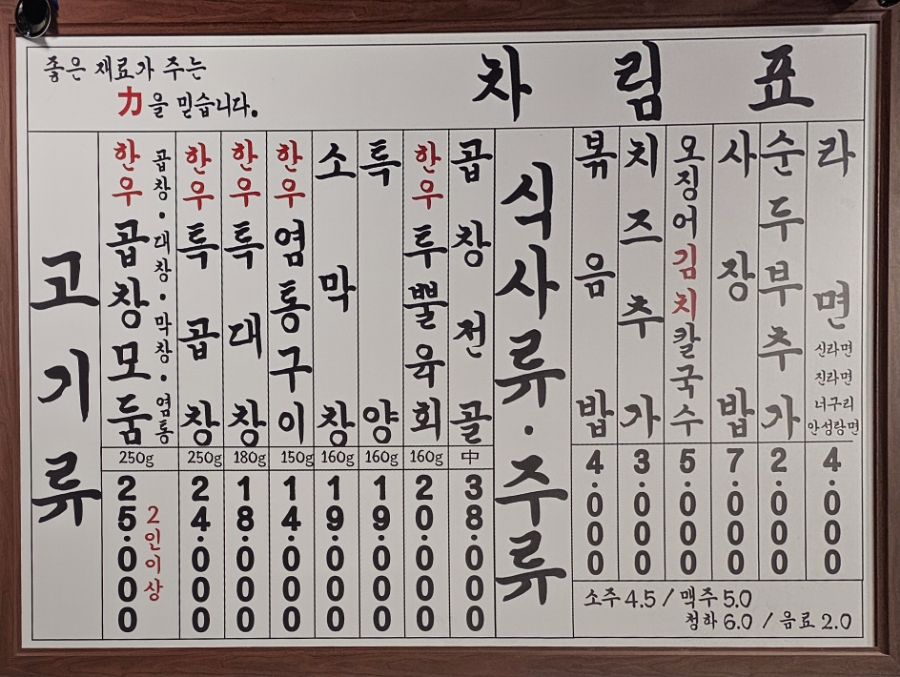 좋은 재료가 주는
力을 믿습니다.
차림표
고기류
한우곱창모둠
곱창·대창·막창·염통
250g
25.000
2인이상
한우특곱창
250g
24.000
한우특대창
180g
18.000
한우염통구이
150g
14.000
소막창
160g
19.000
특양
160g
19.000
한우투뿔육회
160g
20.000
곱창전골
中
38.000
식사류·주류
볶음밥
4.000
치즈추가
3.000
오징어김치칼국수
5.000
사장밥
7.000
순두부추가
2.000
라면
신라면
진라면
너구리
안성탕면
4.000
소주 4.5 / 맥주 5.0
청하 6.0 / 음료 2.0